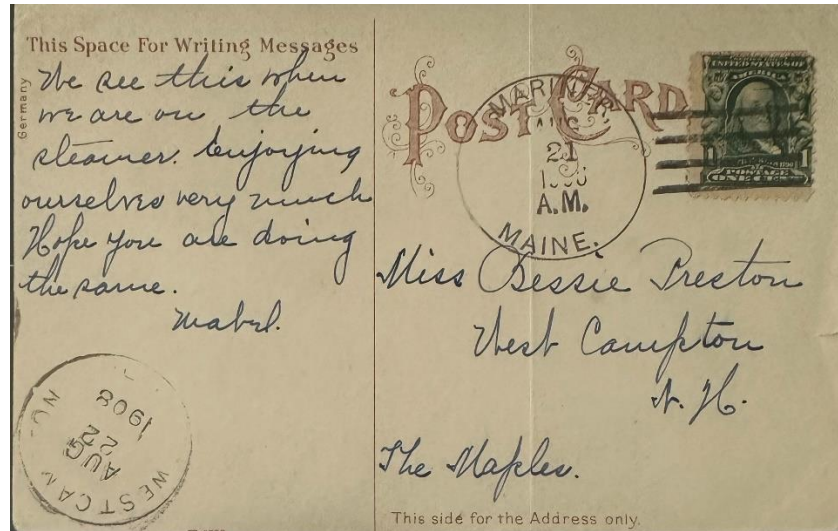 This Space For Writing Messages
Germany
We see this when
we are on the
steamer. Enjoying
ourselves very much
Hope you are doing
the same.
Mabel.
WEST CAM ON
AUG
22
1908
POST CARD
MARINER,
AUG
21
A.M.
MAINE.
UNITED STATES OF
AMERICA
1 1
POSTAGE
ONE CENT
Miss Bessie Preston
West Campton
N. H.
The Maples.
This side for the Address only.